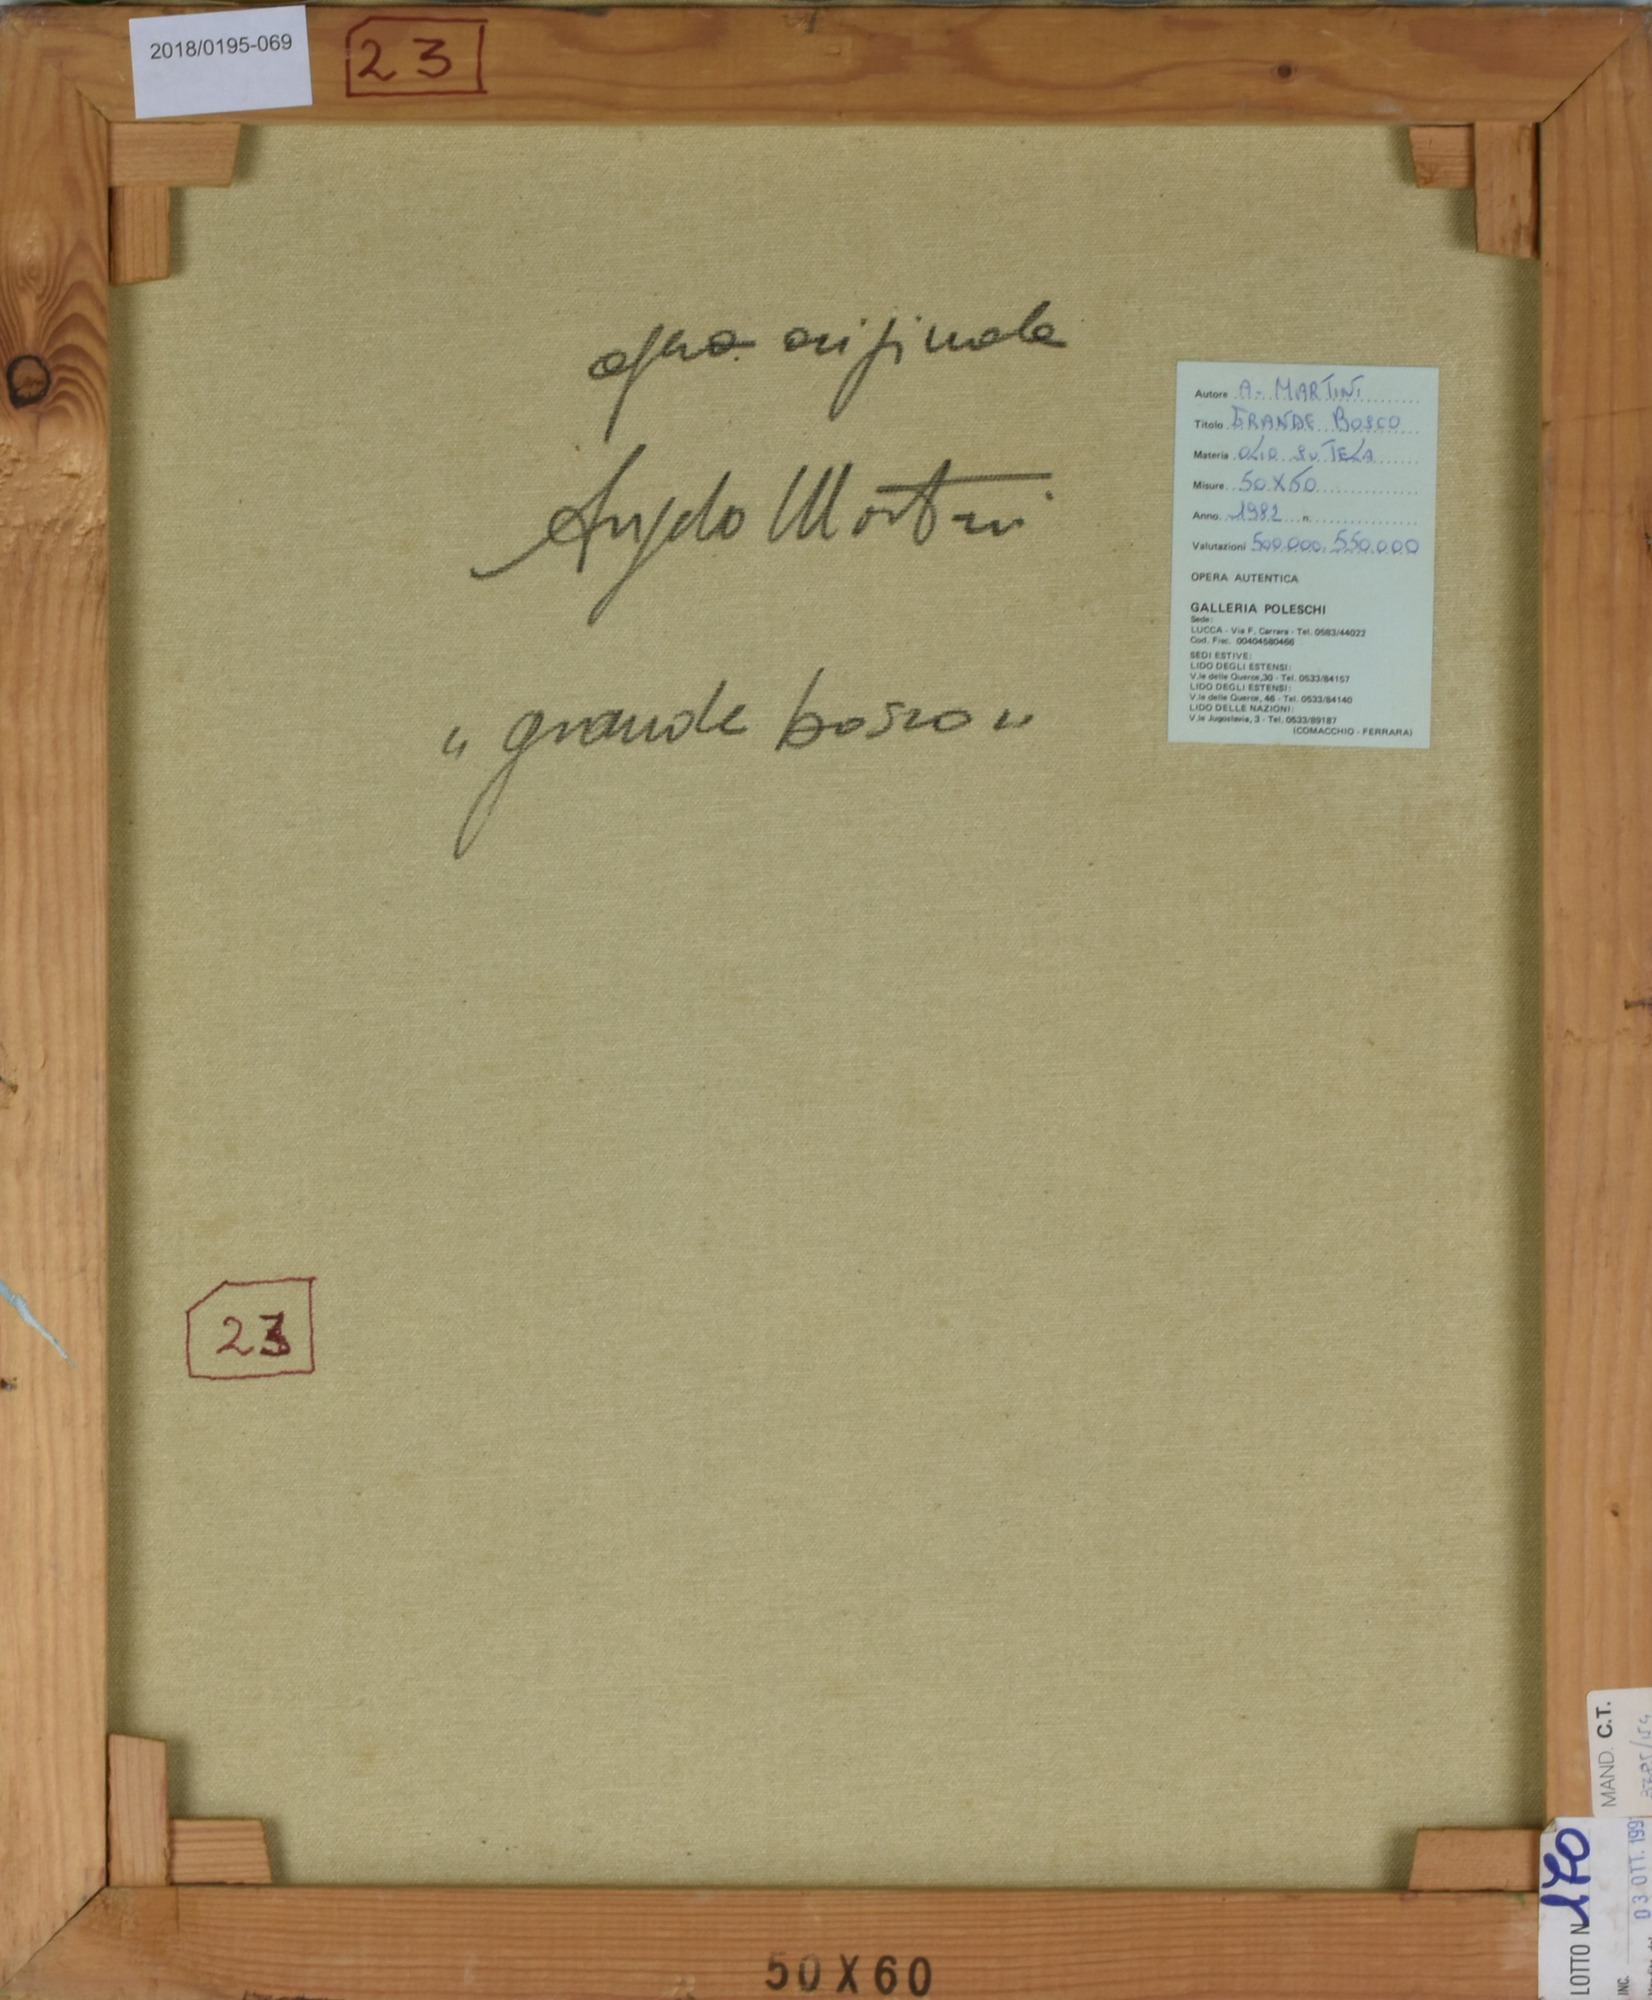 2018/0195-069
23
opera originale
Angelo Martini
"grande bosco"
Autore A. MARTINI
Titolo GRANDE BOSCO
Materia OLIO SU TELA
Misure 50X60
Anno 1982 n.
Valutazioni 500.000. 550.000
OPERA AUTENTICA
GALLERIA POLESCHI
Sede:
LUCCA - Via F. Carrara - Tel. 0583/44022
Cod. Fisc. 00404580466
SEDI ESTIVE:
LIDO DEGLI ESTENSI:
V.le delle Querce, 30 - Tel. 0533/84157
LIDO DEGLI ESTENSI:
V.le delle Querce, 46 - Tel. 0533/84140
LIDO DELLE NAZIONI:
V.le Jugoslavia, 3 - Tel. 0533/89187
(COMACCHIO - FERRARA)
23
MAND. C.T.
LOTTO N 170
INC.
03 OTT. 199
50X60